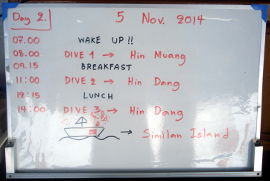 Day 2. 5 Nov. 2014
07.00 WAKE UP!!
08.00 DIVE 1 → Hin Muang
09.15 BREAKFAST
11:00 DIVE 2 → Hin Dang
12:15 LUNCH
14:00 DIVE 3 → Hin Dang
→ Similan Island